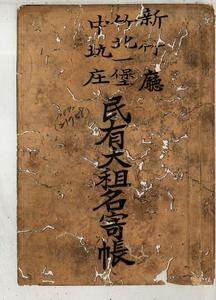 新竹廳
竹北一堡
中坑庄
民有大租名寄帳